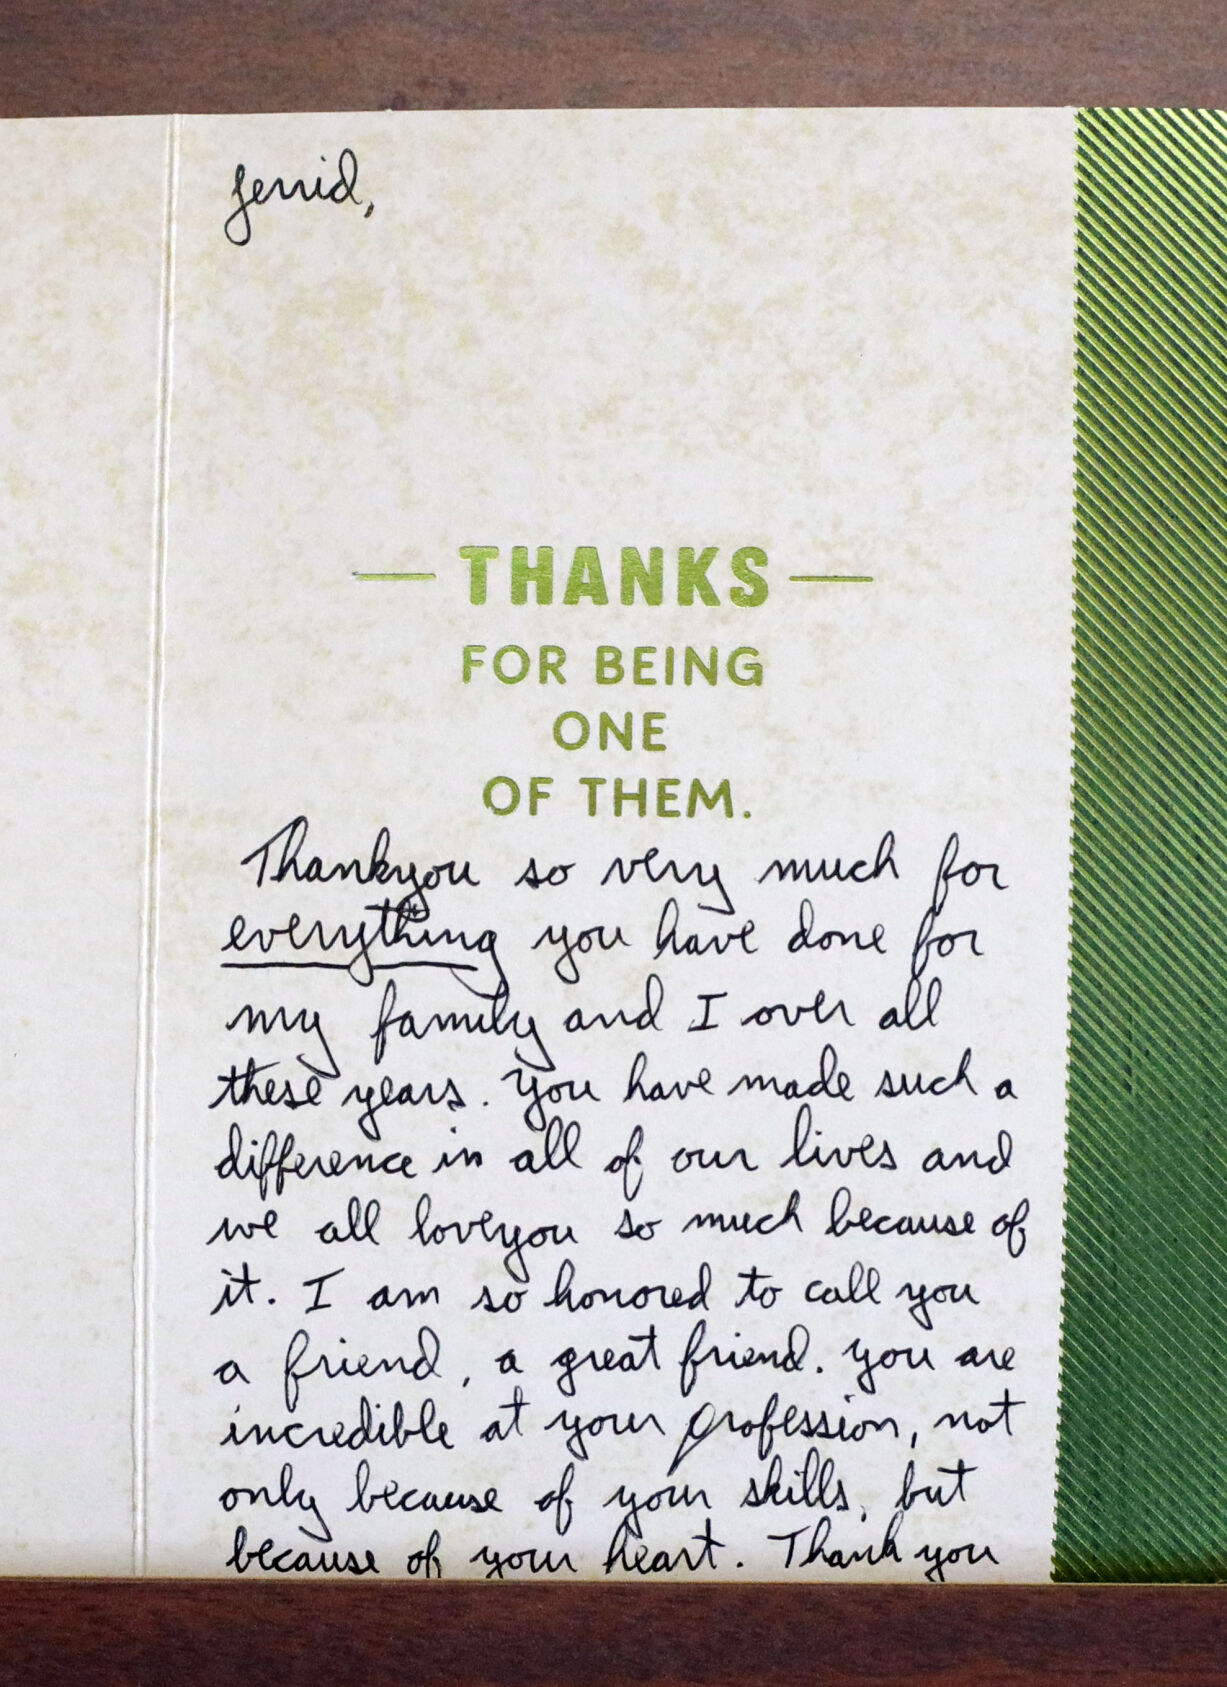 Jerrid,
THANKS
FOR BEING
ONE
OF THEM.
Thankyou so very much for
everything you have done for
my family and I over all
these years. You have made such a
difference in all of our lives and
we all love you so much because of
it. I am so honored to call you
a friend, a great friend. You are
incredible at your profession, not
only because of your skills, but
because of your heart. Thank you